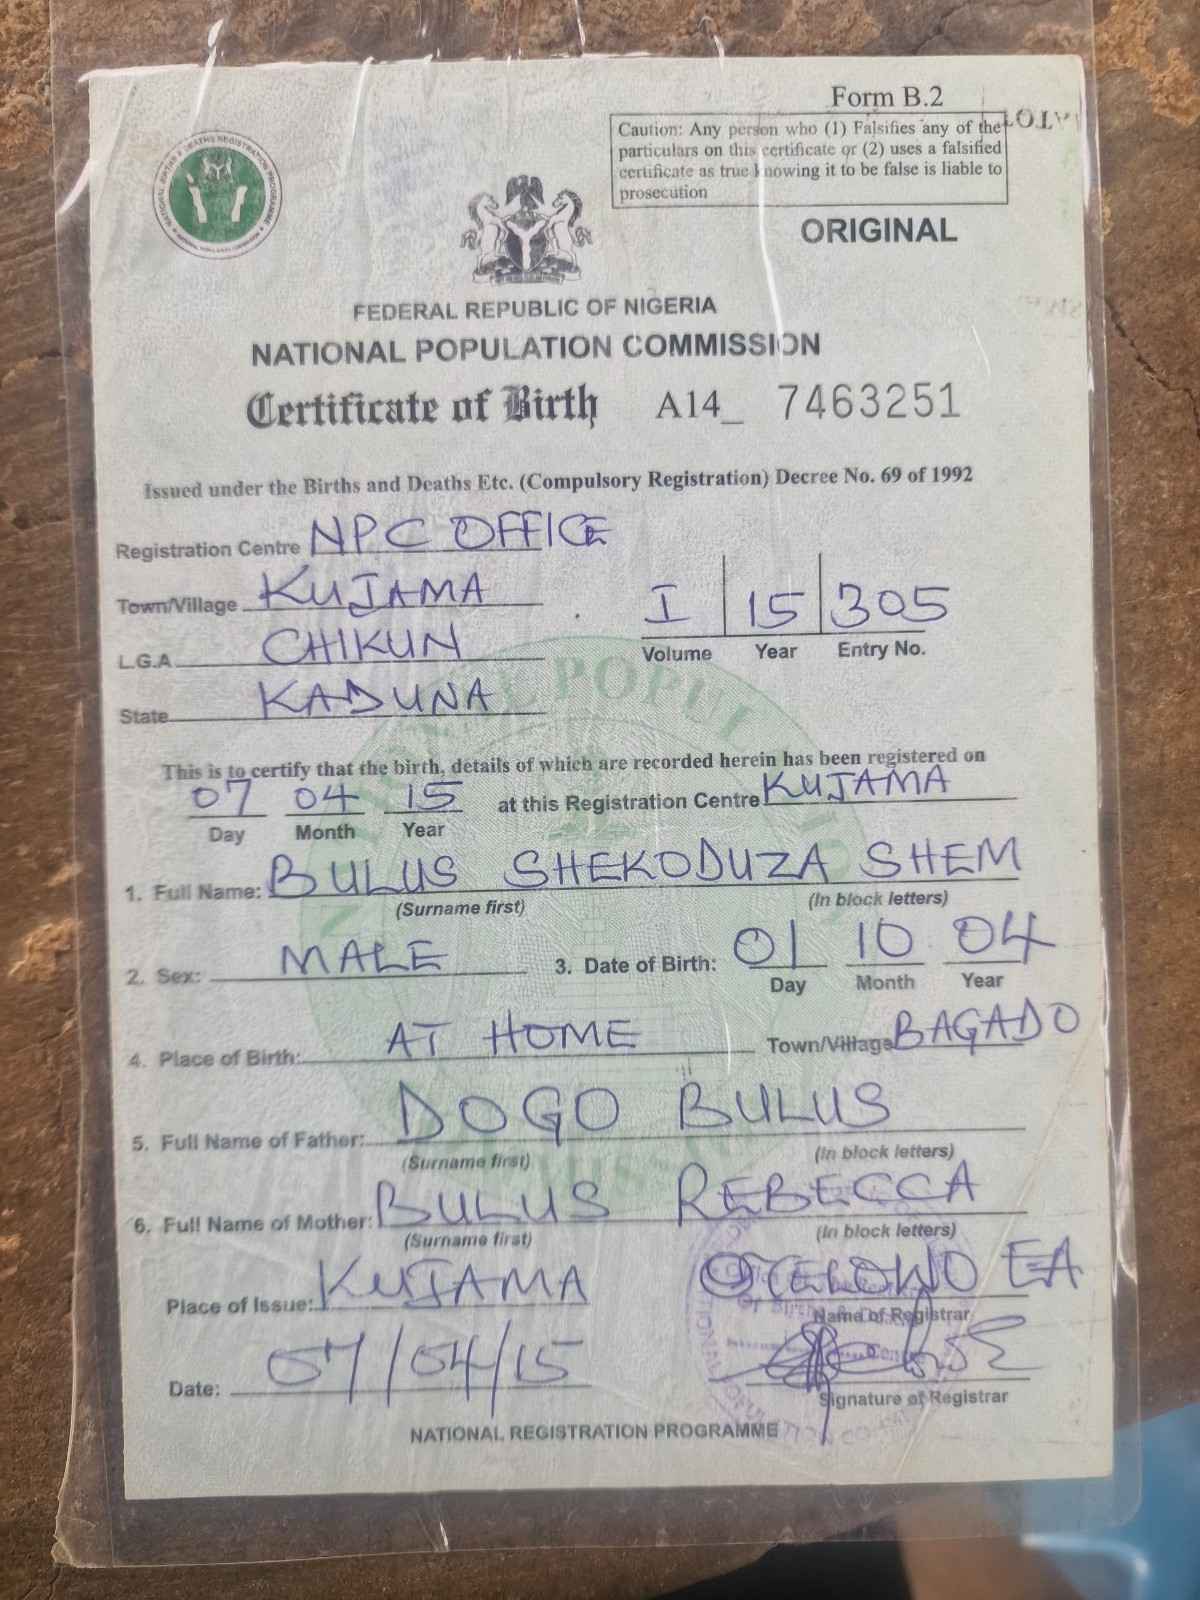 Form B.2
Caution: Any person who (1) Falsifies any of the
particulars on this certificate or (2) uses a falsified
certificate as true knowing it to be false is liable to
prosecution
ORIGINAL
FEDERAL REPUBLIC OF NIGERIA
NATIONAL POPULATION COMMISSION
Certificate of Birth A14_ 7463251
Issued under the Births and Deaths Etc. (Compulsory Registration) Decree No. 69 of 1992
Registration Centre NPC OFFICE
Town/Village KUJAMA I 15 305
L.G.A CHIKUN Volume Year Entry No.
State KADUNA
This is to certify that the birth, details of which are recorded herein has been registered on
07 04 15 at this Registration Centre KUJAMA
Day Month Year
1. Full Name: BULUS SHEKODUZA SHEM
(Surname first) (In block letters)
2. Sex: MALE 3. Date of Birth: 01 10 04
Day Month Year
4. Place of Birth: AT HOME Town/Village BAGADO
5. Full Name of Father: DOGO BULUS
(Surname first) (In block letters)
6. Full Name of Mother: BULUS REBECCA
(Surname first) (In block letters)
Place of Issue: KUJAMA EA
Name of Registrar
Date: 07/04/15
Signature of Registrar
NATIONAL REGISTRATION PROGRAMME